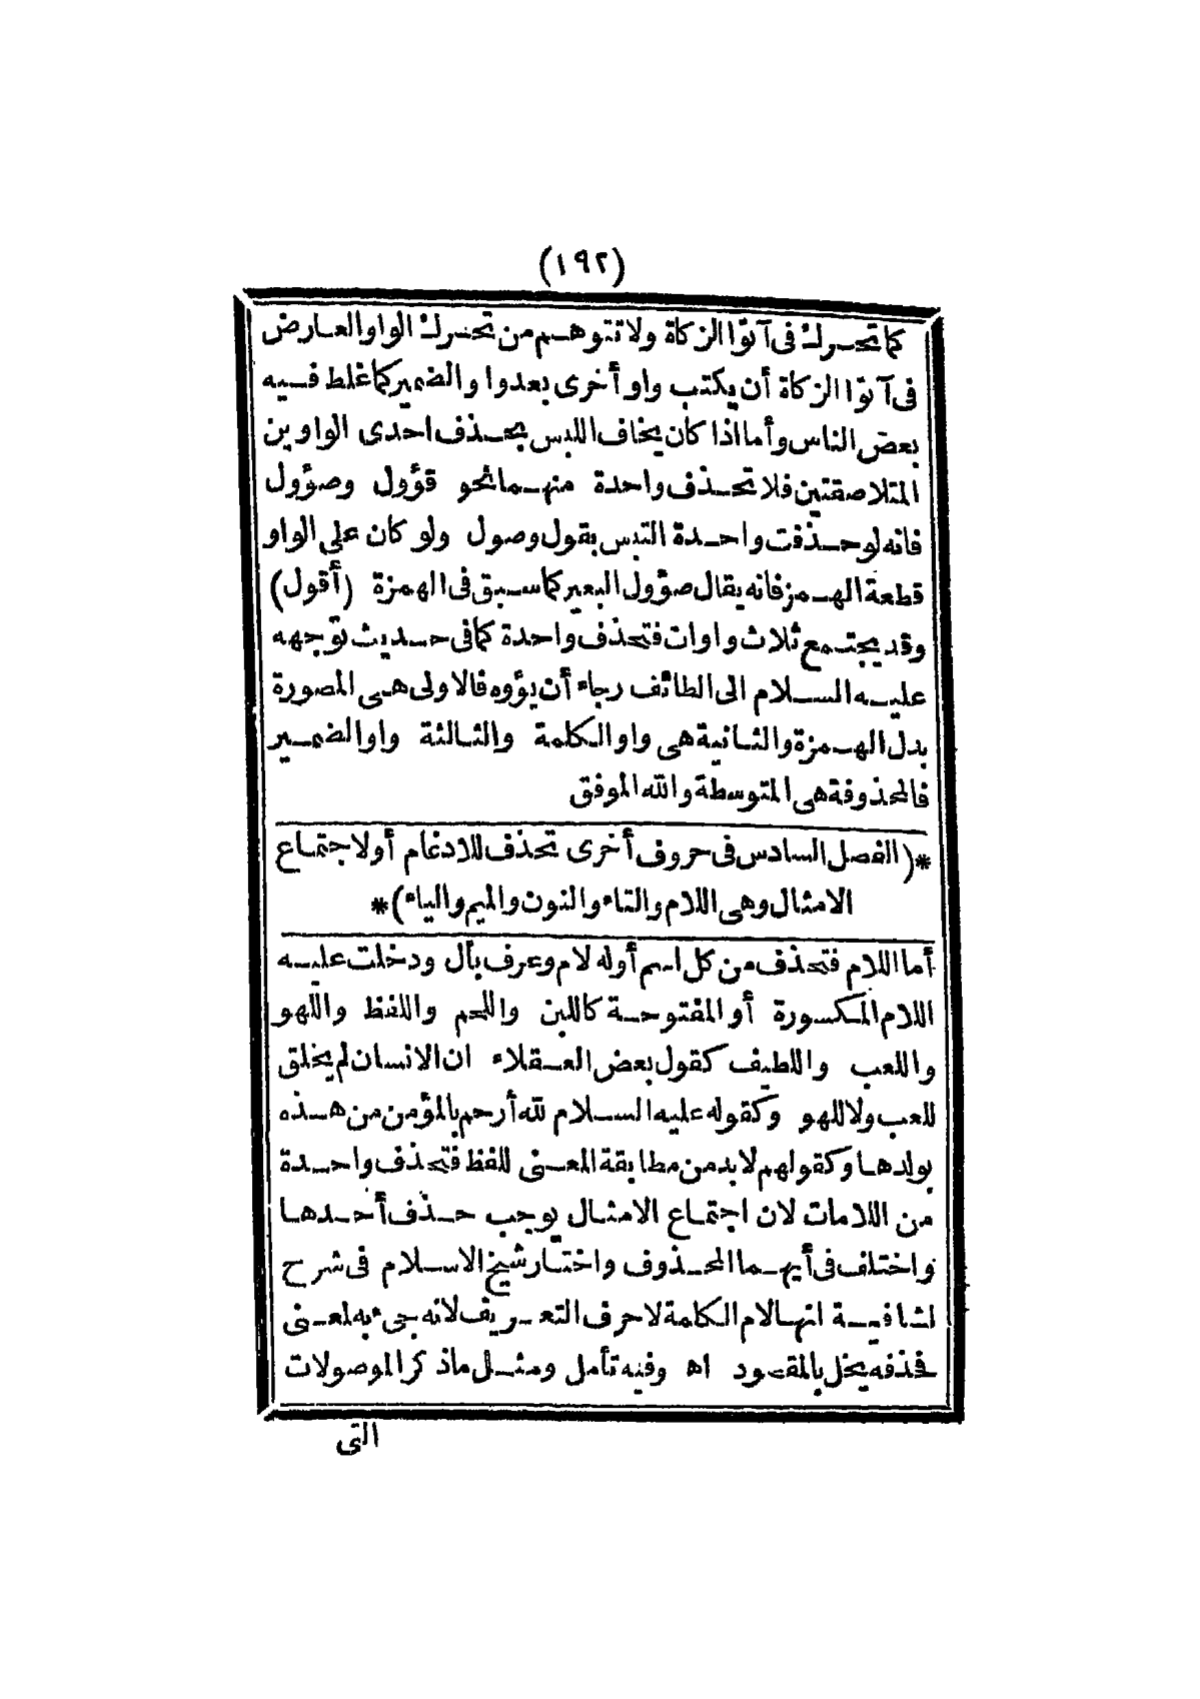 (١٩٢)
كما تحرك فى آتوا الزكاة ولا تتوهم من تحرك الواو العارض
فى آتوا الزكاة أن يكتب واو أخرى بعد واو الضمير كما غلط فيه
بعض الناس وأما اذا كان يخاف اللبس بحذف احدى الواوين
المتلاصقتين فلا تحذف واحدة منهما نحو قؤول وصؤول
فانه لو حذفت واحدة التبس بقول وصول ولو كان على الواو
قطعة الهمز فانه يقال صؤول البعير كما سبق فى الهمزة (أقول)
وقد يجتمع ثلاث واوات فتحذف واحدة كما فى حديث توجهه
عليه السلام الى الطائف رجاء أن يؤوه فالاولى هى المصورة
بدل الهمزة والثانية هى واو الكلمة والثالثة واو الضمير
فالمحذوفة هى المتوسطة والله الموفق
*(الفصل السادس فى حروف أخرى تحذف للادغام أو لاجتماع
الامثال وهى اللام والتاء والنون والميم والياء)*
أما اللام فتحذف من كل اسم أوله لام وعرف بأل ودخلت عليه
اللام المكسورة أو المفتوحة كاللبن واللحم واللفظ واللهو
واللعب واللطيف كقول بعض العقلاء ان الانسان لم يخلق
للعب ولا للهو وكقوله عليه السلام لله أرحم بالمؤمن من هذه
بولدها وكقولهم لابد من مطابقة المعنى للفظ فتحذف واحدة
من اللامات لان اجتماع الامثال يوجب حذف أحدها
واختلف فى أيهما المحذوف واختار شيخ الاسلام فى شرح
لشافية انها لام الكلمة لا حرف التعريف لانه جىء به لمعنى
فحذفه يخل بالمقصود اه وفيه تأمل ومثل ما ذكر الموصولات
التى